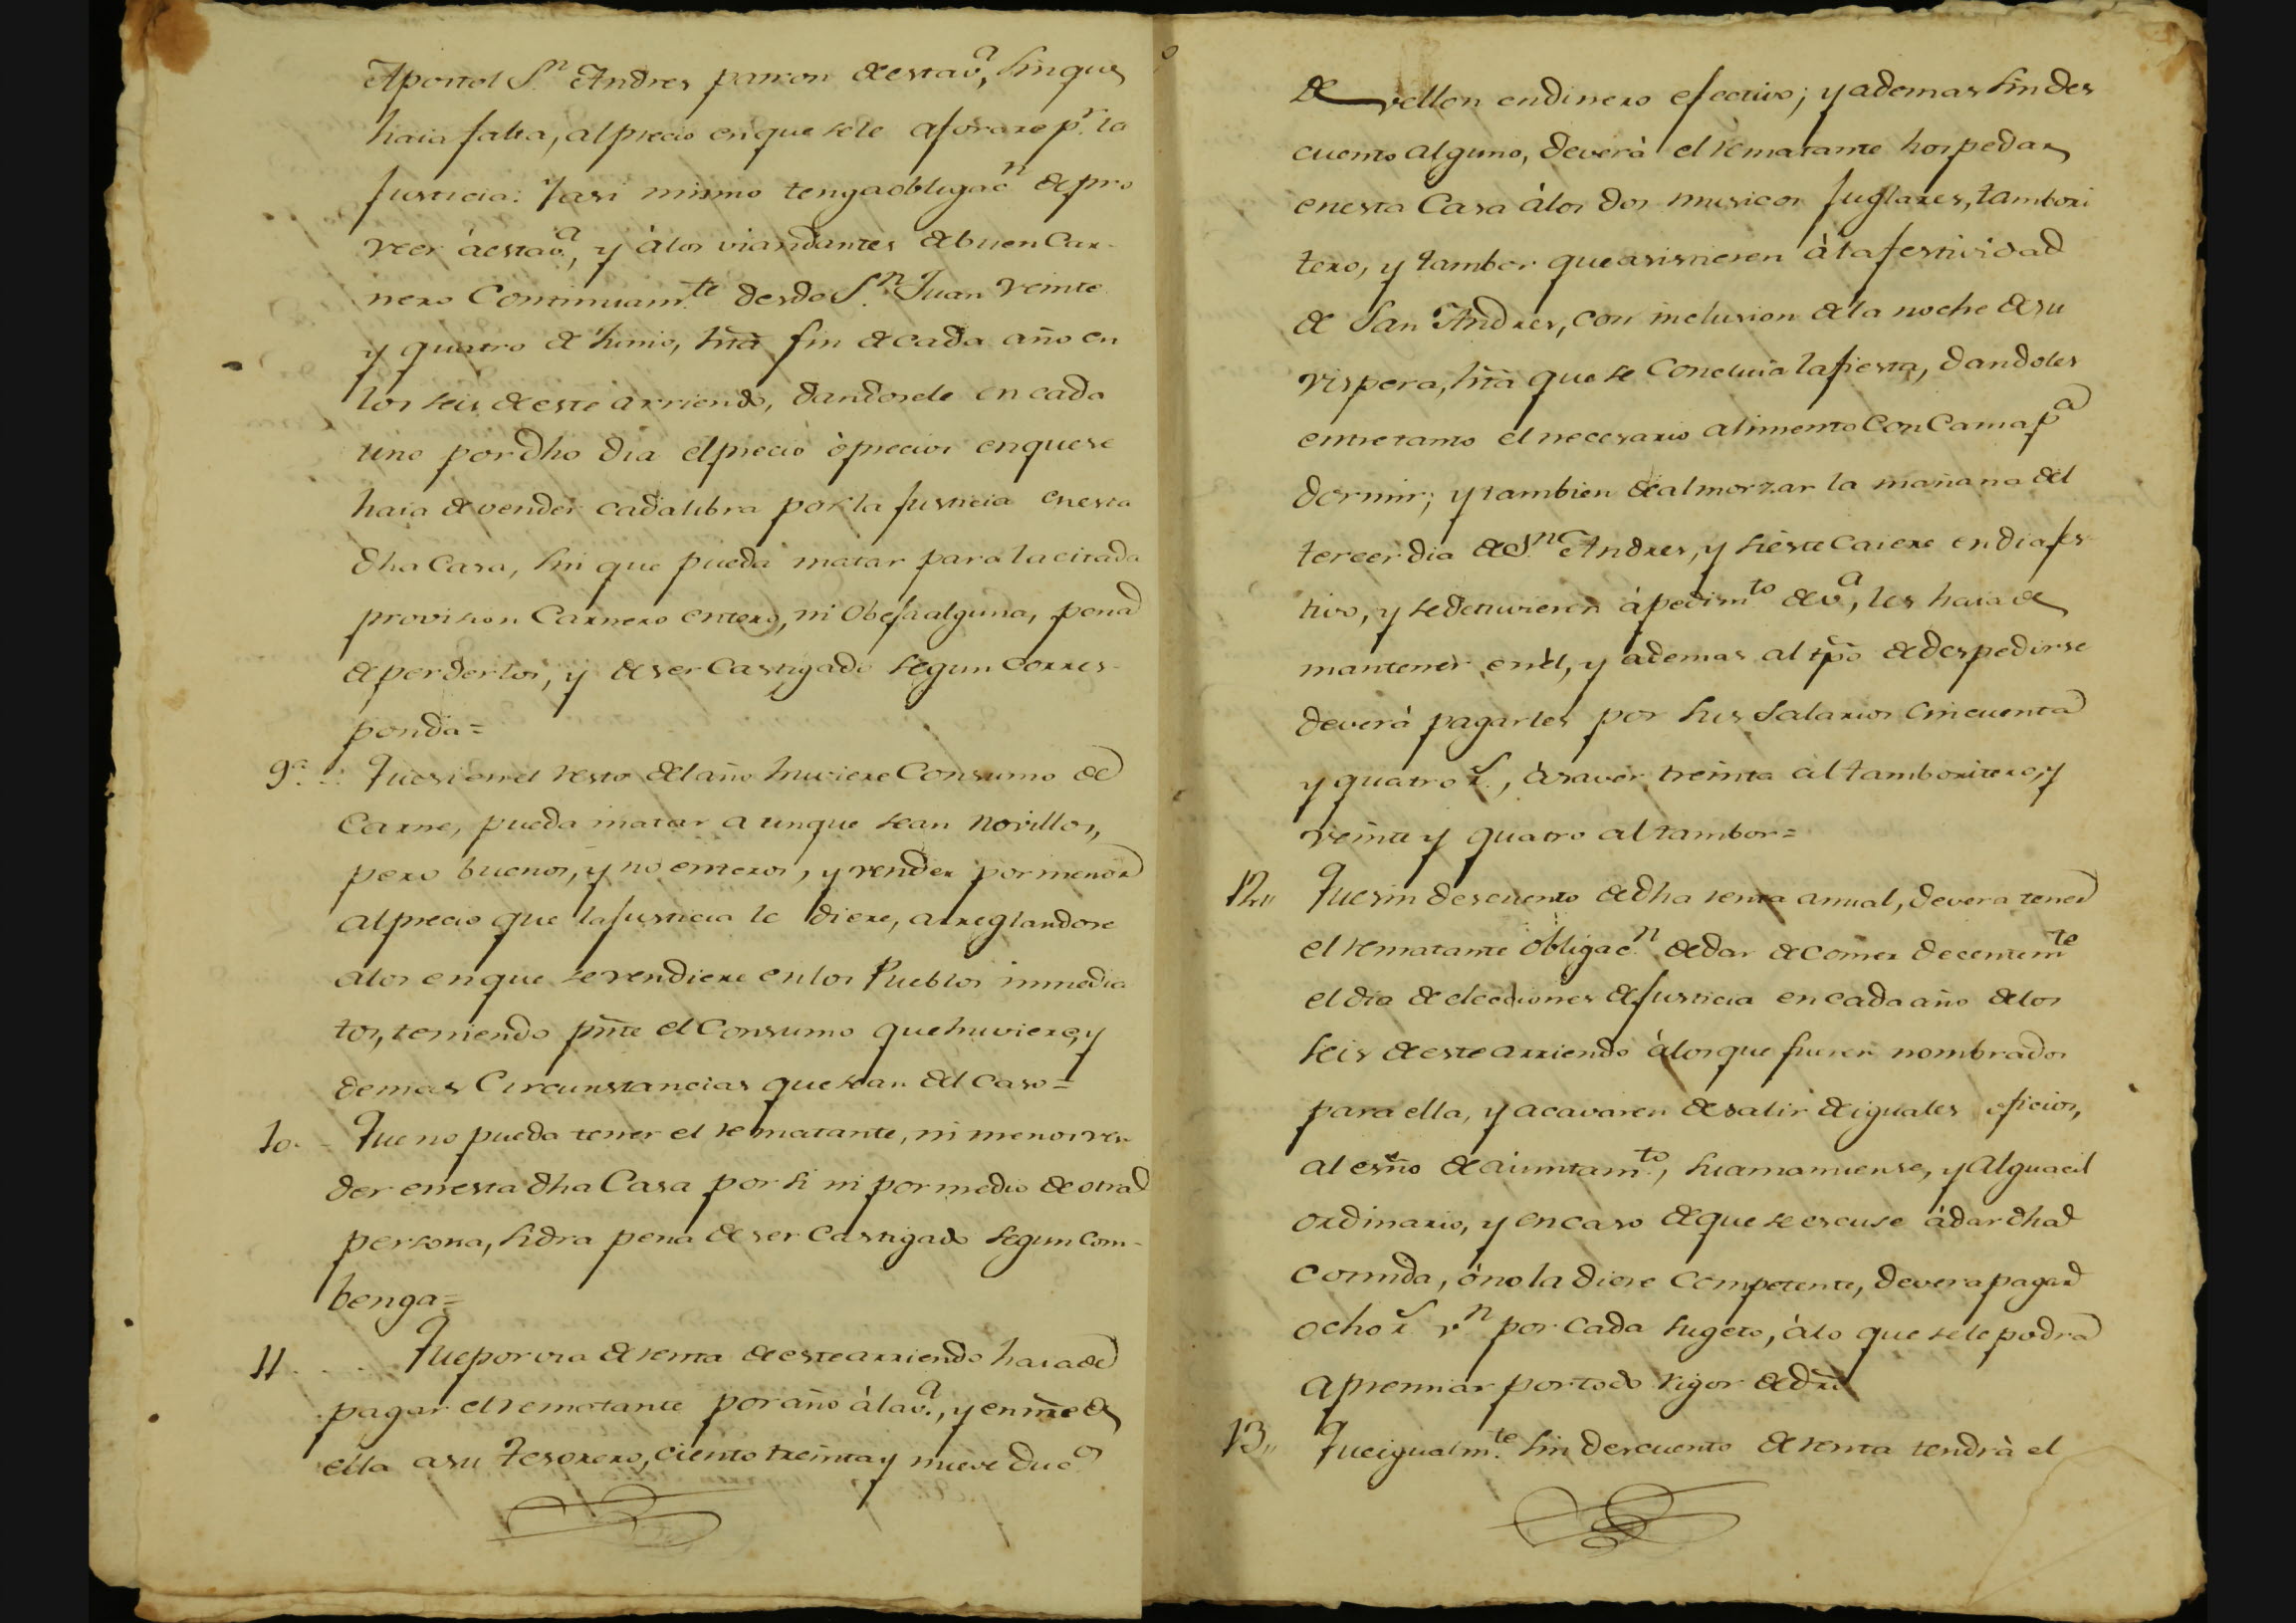 Apostol S.n Andres patron de esta v.a, sin que
haia falta, al precio en que se le aforare p.r la
Justicia: Y asi mismo tenga obligac.n de pro
veer à esta v.a, y à los viandantes de buen Car-
nero Continuam.te desde S.n Juan veinte
y quatro de Junio, hta fin de cada año en
los seis de este arriendo, dandosele en cada
uno por dho dia el precio ò precios en que se
haia de vender cada libra por la Justicia en esta
dha Casa, sin que pueda matar para la citada
provision Carnero entero, ni Obeja alguna, pena
de perderlos, y de ser Castigado segun corres-
ponda=
9.a Que si en el resto del año huviere Consumo de
Carne, pueda matar aunque sean novillos,
pero buenos, y no enteros, y vender por menor
al precio que la Justicia le diere, arreglandose
a los en que se vendiere en los Pueblos inmedia
tos, teniendo pnte el Consumo que huviere, y
demas Circunstancias que sean del caso=
10. Que no pueda tener el rematante, ni menos ven
der en esta dha Casa por si ni por medio de otra
persona, sidra pena de ser Castigado segun com-
benga=
11. Que por via de renta de este arriendo haia de
pagar el rematante por año à la v.a, y en nre de
ella a su Tesorero, ciento treinta y nueve duc.s
de vellon en dinero efectivo; y ademas sin des
cuento alguno, deverà el rematante hospedar
en esta Casa à los dos musicos Juglares, tambori
tero, y tambor que asistieren à la festividad
de San Andres, con inclusion de la noche de su
vispera, hta que se Concluia la fiesta, dandoles
entretanto el necesario alimento Con Cama p.a
dormir; y tambien de almorzar la mañana del
tercer dia de S.n Andres, y si este Caiere en dia fes-
tivo, y se detuvieren à pedim.to de v.a, les haia de
mantener en èl, y ademas al tpo de despedirse
deverà pagarles por sus Salarios Cincuenta
y quatro r.s, à saver treinta al tamboritero, y
veinte y quatro al tambor=
12,, Que sin descuento de dha renta anual, devera tener
el rematante obligac.n de dar de comer decentem.te
el dia de elecciones de Justicia en cada año de los
seis de este arriendo à los que fueren nombrados
para ella, y acavaren de salir de iguales oficios,
al esno de aiuntam.to, su amanuense, y Alguacil
ordinario, y en caso de que se escuse à dar dha
comida, ò no la diere Competente, devera pagar
ocho r.s v.n por cada sugeto, à lo que se le podra
apremiar por todo rigor de dro
13,, Que igualm.te sin descuento de renta tendrà el